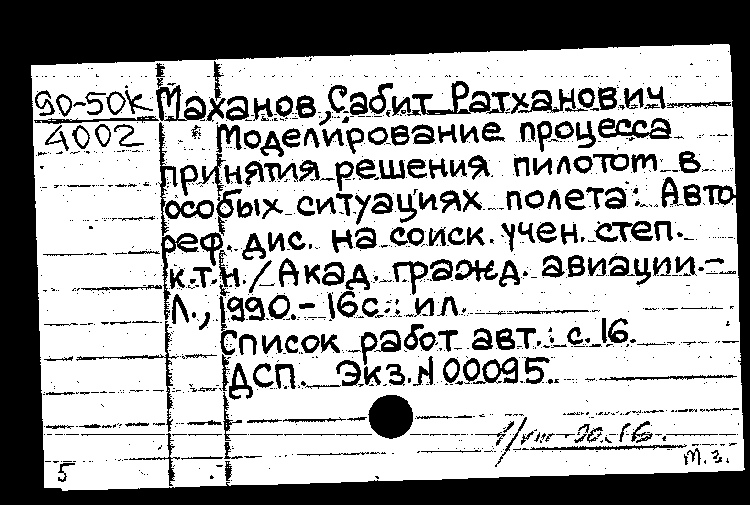 90-50К Маханов, Сабит Ратханович
4002 Моделирование процесса
принятия решения пилотом в
особых ситуациях полета: Авто
реф. дис. на соиск. учен. степ.
к.т.н./Акад. гражд. авиации.-
Л., 1990.- 16с.: ил.
Список работ авт.: с. 16.
ДСП. Экз. N 00095.
М.З.
5